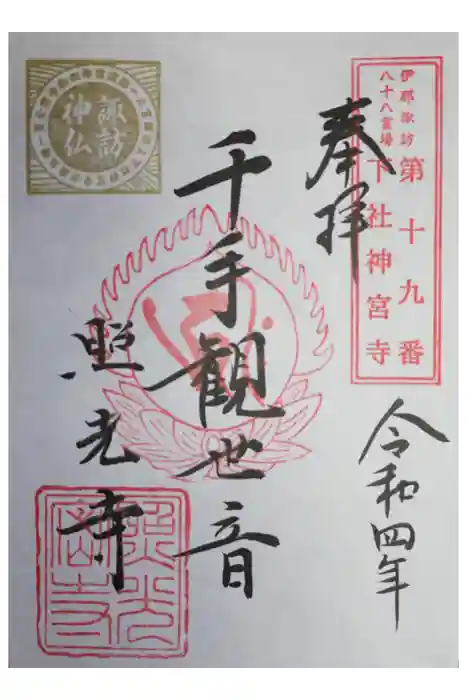 伊那諏訪
八十八霊場
第十九番
下社神宮寺
奉拝
令和四年
千手観世音
照光寺
諏訪
神仏
照光
密寺